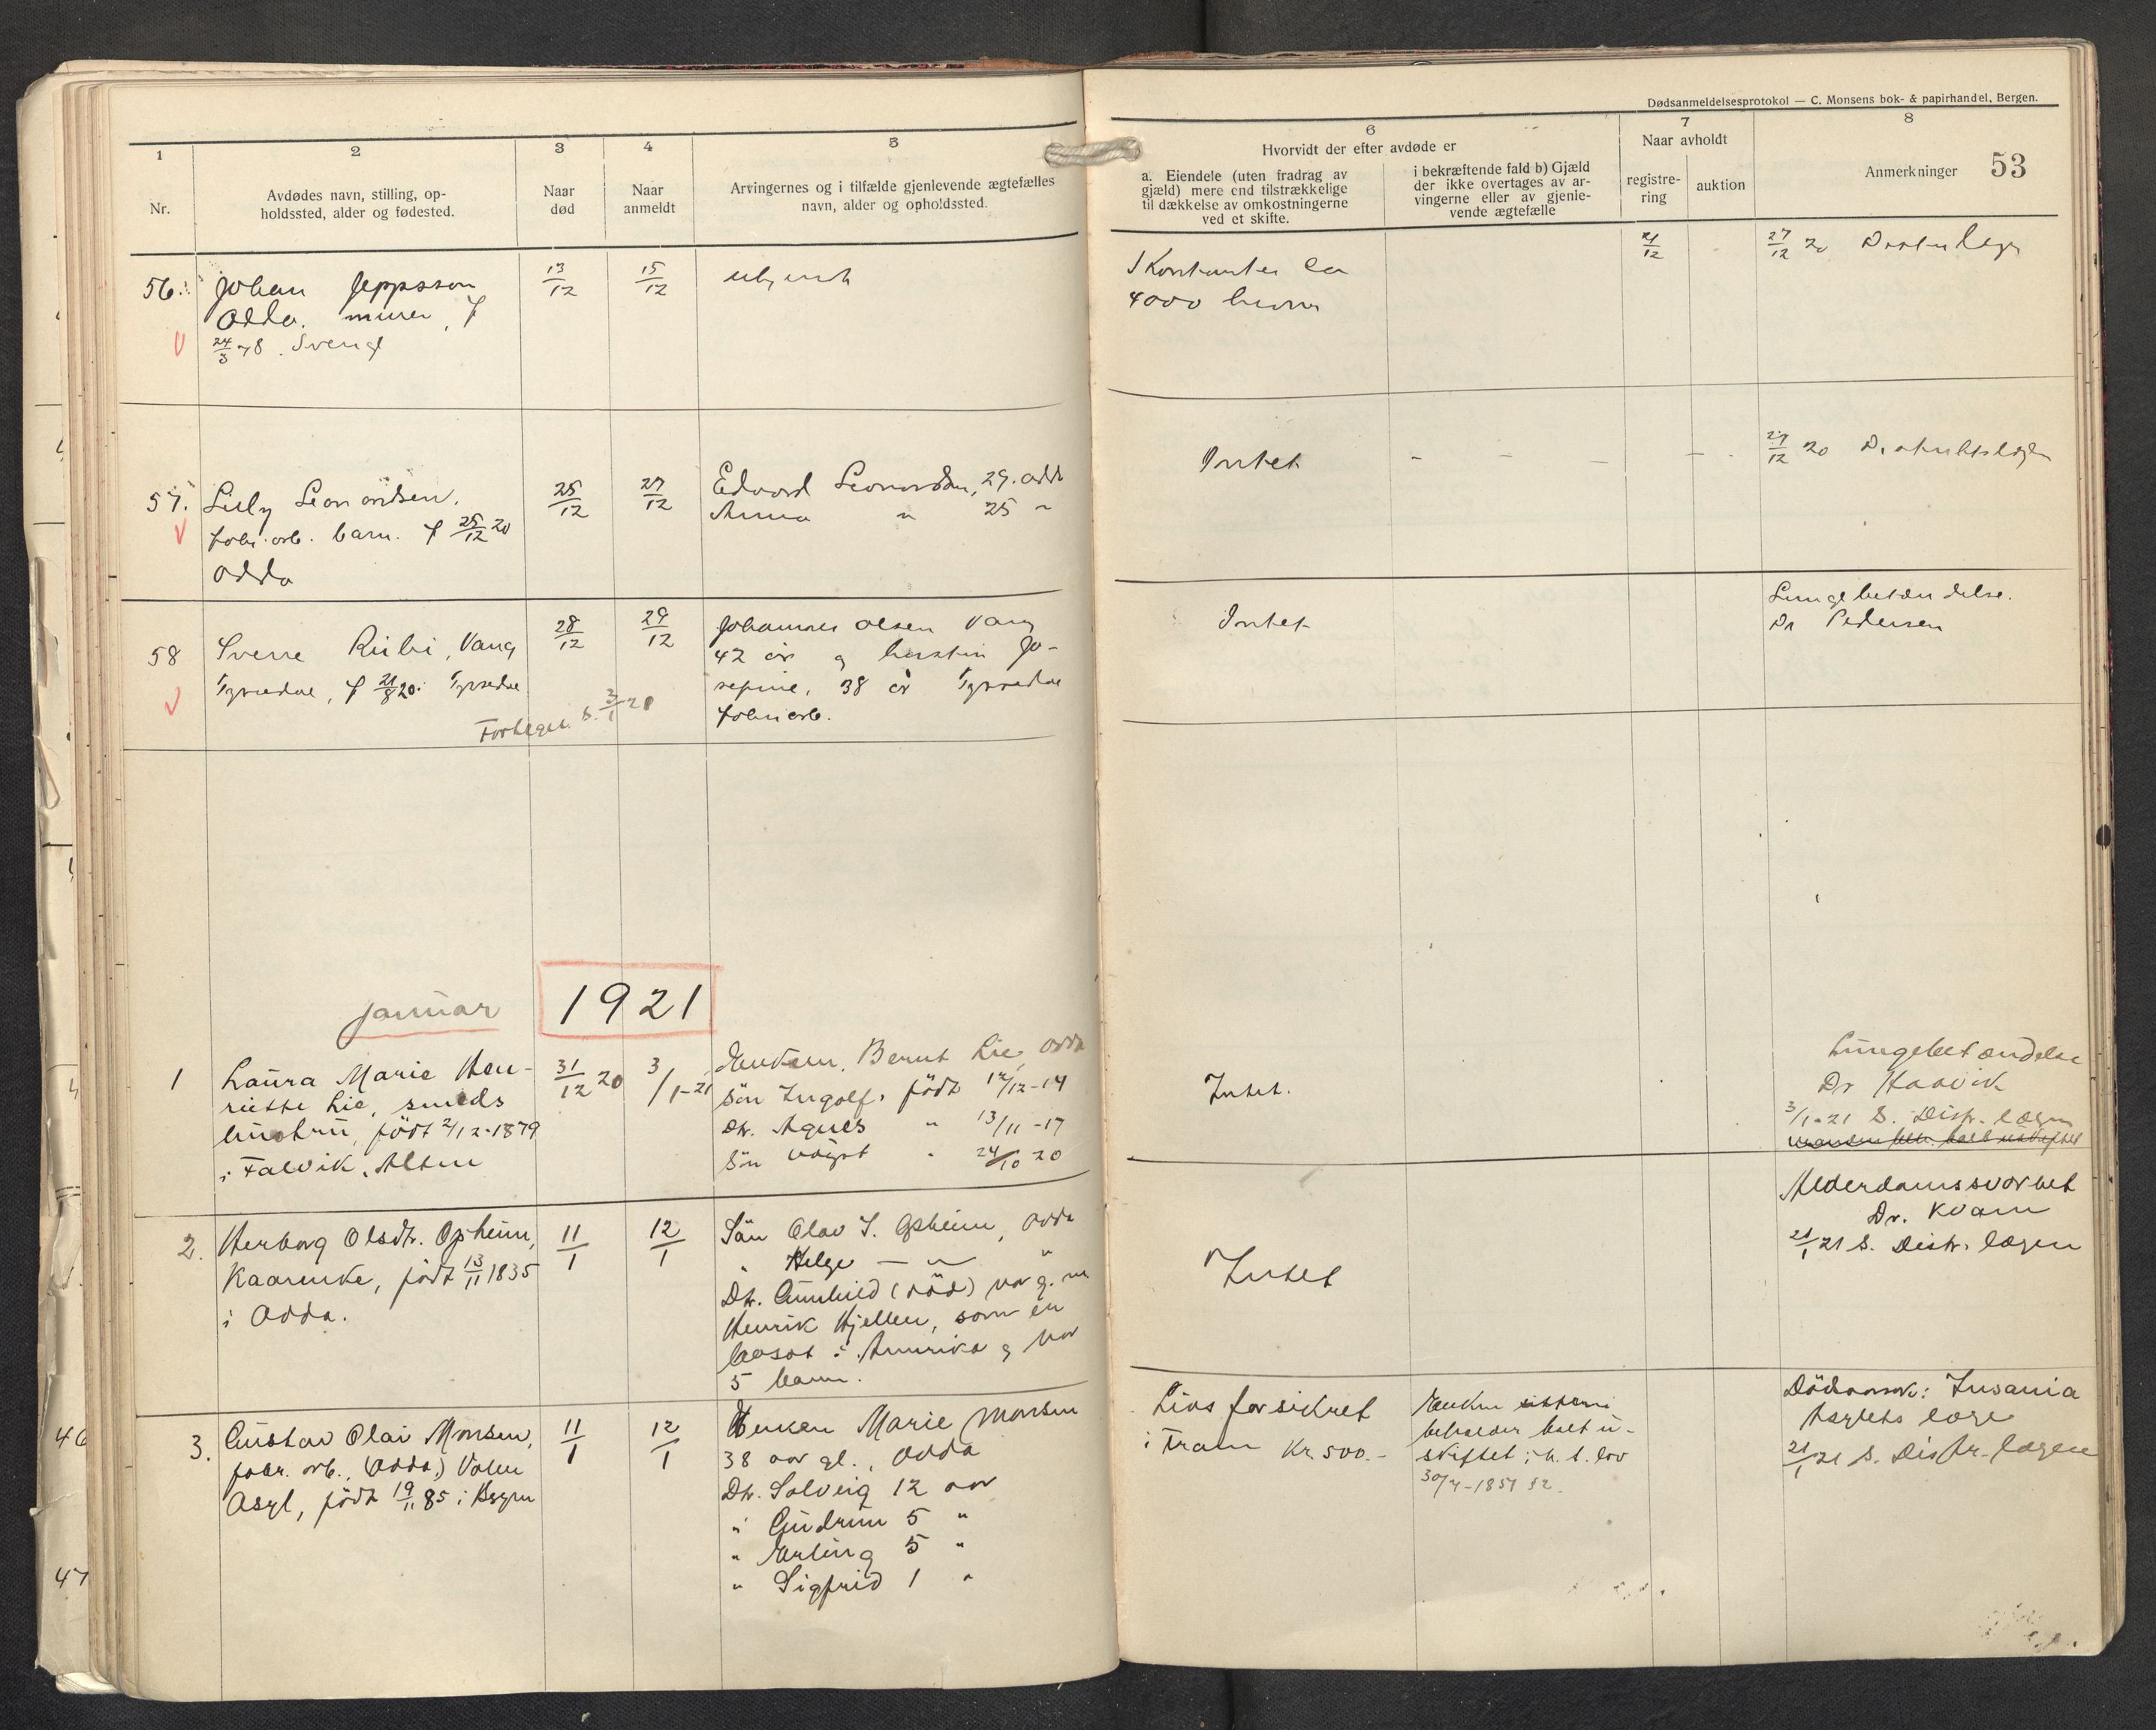 Dødsanmeldelsesprotokol — C. Monsens bok- & papirhandel, Bergen.
53
1
Nr.
2
Avdødes navn, stilling, op-
holdssted, alder og fødested.
3
Naar
død
4
Naar
anmeldt
5
Arvingernes og i tilfælde gjenlevende ægtefælles
navn, alder og opholdssted.
6
Hvorvidt der efter avdøde er
a. Eiendele (uten fradrag av
gjæld) mere end tilstrækkelige
til dækkelse av omkostningerne
ved et skifte.
i bekræftende fald b) Gjæld
der ikke overtages av ar-
vingerne eller av gjenle-
vende ægtefælle
7
Naar avholdt
registre-
ring
auktion
8
Anmerkninger
56.
Johan Jeppsson
Odda. murer, f
24/3 78. Svensk
13/12
15/12
ubekjendt
I Kontanter ca
4000 kroner
21/12
27/12 20 Distr. læge
57.
Lilly Leonardsen.
fabr. arb. barn. f 25/12 20
Odda
25/12
27/12
Edvard Leonardsen, 29. Odda
Anna " 25 "
Intet - - - - -
27/12 20 Distriktslægen
58
Sverre Rubi, Vang
Tyssedal, f 21/8 20. Tyssedal
28/12
29/12
Johannes Olsen Vang
42 år og hustru Jo-
sefine, 38 år Tyssedal
fabr. arb.
Intet
Lungebetændelse.
Dr Pedersen
Fortegn. s. 3/1 20
januar
1921
1
Laura Marie Hen-
riette Lie, smeds
hustru, född 2/12-1879
i Talvik, Alten
31/12 20
3/1-21
Enkem. Bernt Lie, Odda
Sön Ingolf, född 12/12-14
Dtr. Agnes " 13/11-17
Sön " 24/10 20
Intet.
Lungebetændelse
Dr Haavik
3/1-21 S. Distr. lægen
2.
Herborg Olsdtr. Opheim,
Kaarenke, född 13/11 1835
i Odda.
11/1
12/1
Sön Olav S. Opheim, Odda
" Helge — " "
Dtr. Gunhild (död) var g. m
Henrik Hjellen, som er
bosat i Amerika og har
5 barn.
Intet
Alderdomssvakhet
Dr. Kvam
21/1 21 S. Distr. lægen
3.
Gustav Olai Monsen,
fabr. arb., (Odda,) Valen
Asyl, född 19/11 85 i Bergen
11/1
12/1
Enken Marie Monsen
38 aar gl., Odda
Dtr. Solveig 12 aar
" Gudrun 5 "
" Erling 5 "
" Sigfrid 1 "
Livsforsikret
i Fram Kr. 500.-
Enken
beholder boet u-
skiftet i h. t. lov
30/7-1851 §2.
Dödsårsak: Insania
Asylets læge
21/1 21 S. Distr. lægen
46
47